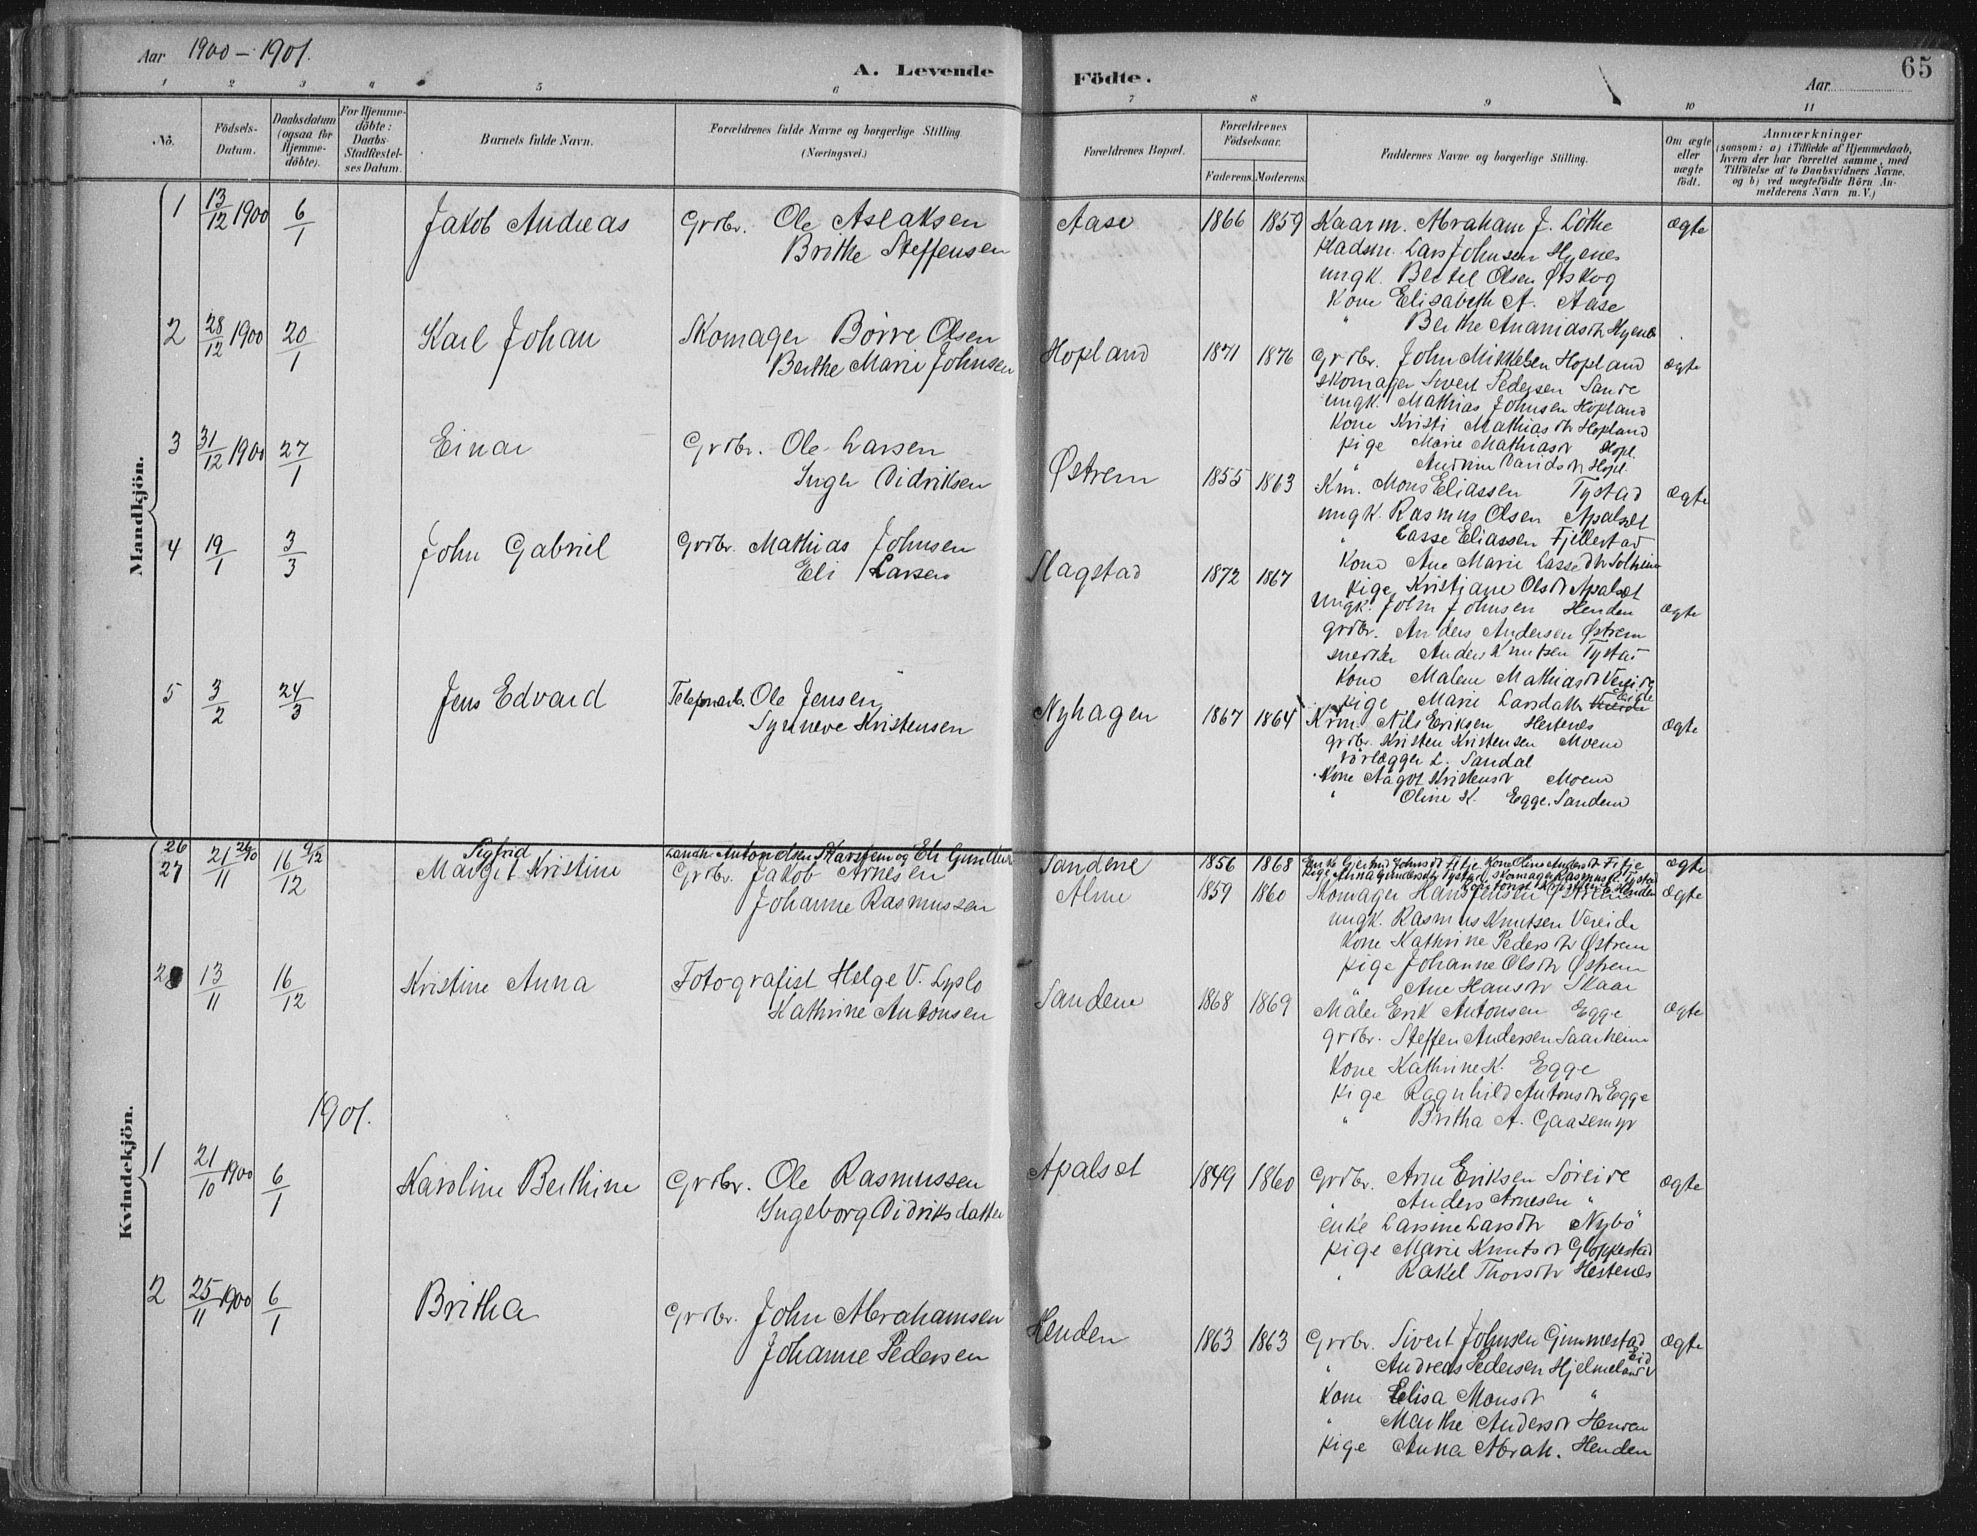 Aar 1900 – 1901.
A. Levende Födte.
Aar
65
1 2 3 4 5 6 7 8 9 10 11
No.
Födsels-Datum.
Daabsdatum (ogsaa for Hjemme-döbte).
For Hjemme-döbte: Daabs-Stadfæstel-ses Datum.
Barnets fulde Navn.
Forældrenes fulde Navne og borgerlige Stilling. (Næringsvei.)
Forældrenes Bopæl.
Forældrenes Födselsaar.
Faderens. Moderens.
Faddernes Navne og borgerlige Stilling.
Om ægte eller uægte födt.
Anmærkninger
(saasom: a) i Tilfælde af Hjemmedaab,
hvem der har forrettet samme, med
Tilföielse af to Daabsvidners Navne,
og b) ved uægtefödte Börn An-
melderens Navn m. V.)
Mandkjön.
1 13/12 1900 6/1 Jakob Andreas Grdbr. Ole Aslaksen Aase 1866 1859 Kaarm. Abraham J. Löthe ægte
Brithe Steffensen
Pladsm. Lars Johnsen Hjenes
ungk. Bertel Olsen Öiskog
Kone Elisabeth A. Aase
" Berthe Ananiasdtr Hjenes
2 28/12 1900 20/1 Karl Johan Skomager Börre Olsen Hopland 1871 1876 Grdbr. John Mikkelsen Hopland ægte
Berthe Marie Johnsen
Skomager Sivert Pedersen Sande
ungk. Mathias Johnsen Hopland
Kone Kristi Mathiasdtr Hopland
pige Marie Mathiasdr Hopl.
" Andrine Davidsdr Hopl.
3 31/12 1900 27/1 Einar Grdbr. Ole Larsen Østrem 1855 1863 Km. Mons Eliassen Tystad ægte
Inger Didriksen
ungk. Rasmus Olsen Apalset
" Lasse Eliassen Fjellestad
Kone Ane Marie Lassedtr Solheim
pige Kristiane Olsdr Apalset
4 19/1 3/3 John Gabriel Grdbr. Mathias Johnsen Slagstad 1872 1867 Ungk. John Johnsen Henden ægte
Eli Larsen
grdbr. Anders Andersen Østrem
snedker Anders Knutsen Tystad
Kone Malene Mathiasdr Vereide
pige Marie Larsdatter Eide
5 3/2 24/3 Jens Edvard Telefonarb. Ole Jensen Nyhagen 1867 1864 Krm. Nils Eriksen Hestenes ægte
Synneve Kristensen
grdbr. Kristen Kristensen Moene
L. Sandal
Kone Aagot Kristensdr Moene
" Oline K. Egge. Sandene
Kvindekjön.
26 26/10 9/12 Sigfrid Antonelsen Karstein og Eli Gunder Sandene 1856 1868 Enke Gjertrud Johnsdr Fitje Kone Oline Andersdr Fitje ægte
pige Anna Gundersdtr Tystad, Skomager Rasmus Tystad
Kontorist Kristen E. Henden
27 21/11 16/12 Margit Kristine Grdbr. Jakob Arnesen Alme 1859 1860 Skomager Hans Jensen Østrem ægte
Johanne Rasmussen
ungk. Rasmus Knutsen Vereide
Kone Kathrine Pedersdtr Østrem
pige Johanne Olsdtr Østrem
" Ane Hansdr Skaar
28 13/11 16/12 Kristine Anna Fotografist Helge V. Lyslo Sandene 1868 1869 Maler Erik Antonsen Egge ægte
Kathrine Antonsen
grdbr. Steffen Andersen Saarheim
Kone Kathrine K. Egge
pige Ragnhild Antonsdtr Egge
" Britha A. Gaasemyr
1901.
1 21/10 1900 6/1 Karoline Berthine Grdbr. Ole Rasmussen Apalset 1849 1860 Grdbr. Arne Eriksen Söreide ægte
Ingeborg Didriksdatter
" Anders Arnesen "
enke Larsine Larsdtr Nybö
pige Marie Knutsdr Gloppestad
" Rakel Thorsdtr Hestenes
2 25/11 1900 6/1 Britha Grdbr. John Abrahamsen Henden 1863 1863 Grdbr. Sivert Johnsen Gimmestad ægte
Johanne Pedersen
" Andreas Pedersen Hjelmeland Eid
Kone Elisa Monsdr "
" Marthe Andersdr Henden
pige Anna Abrah. Henden